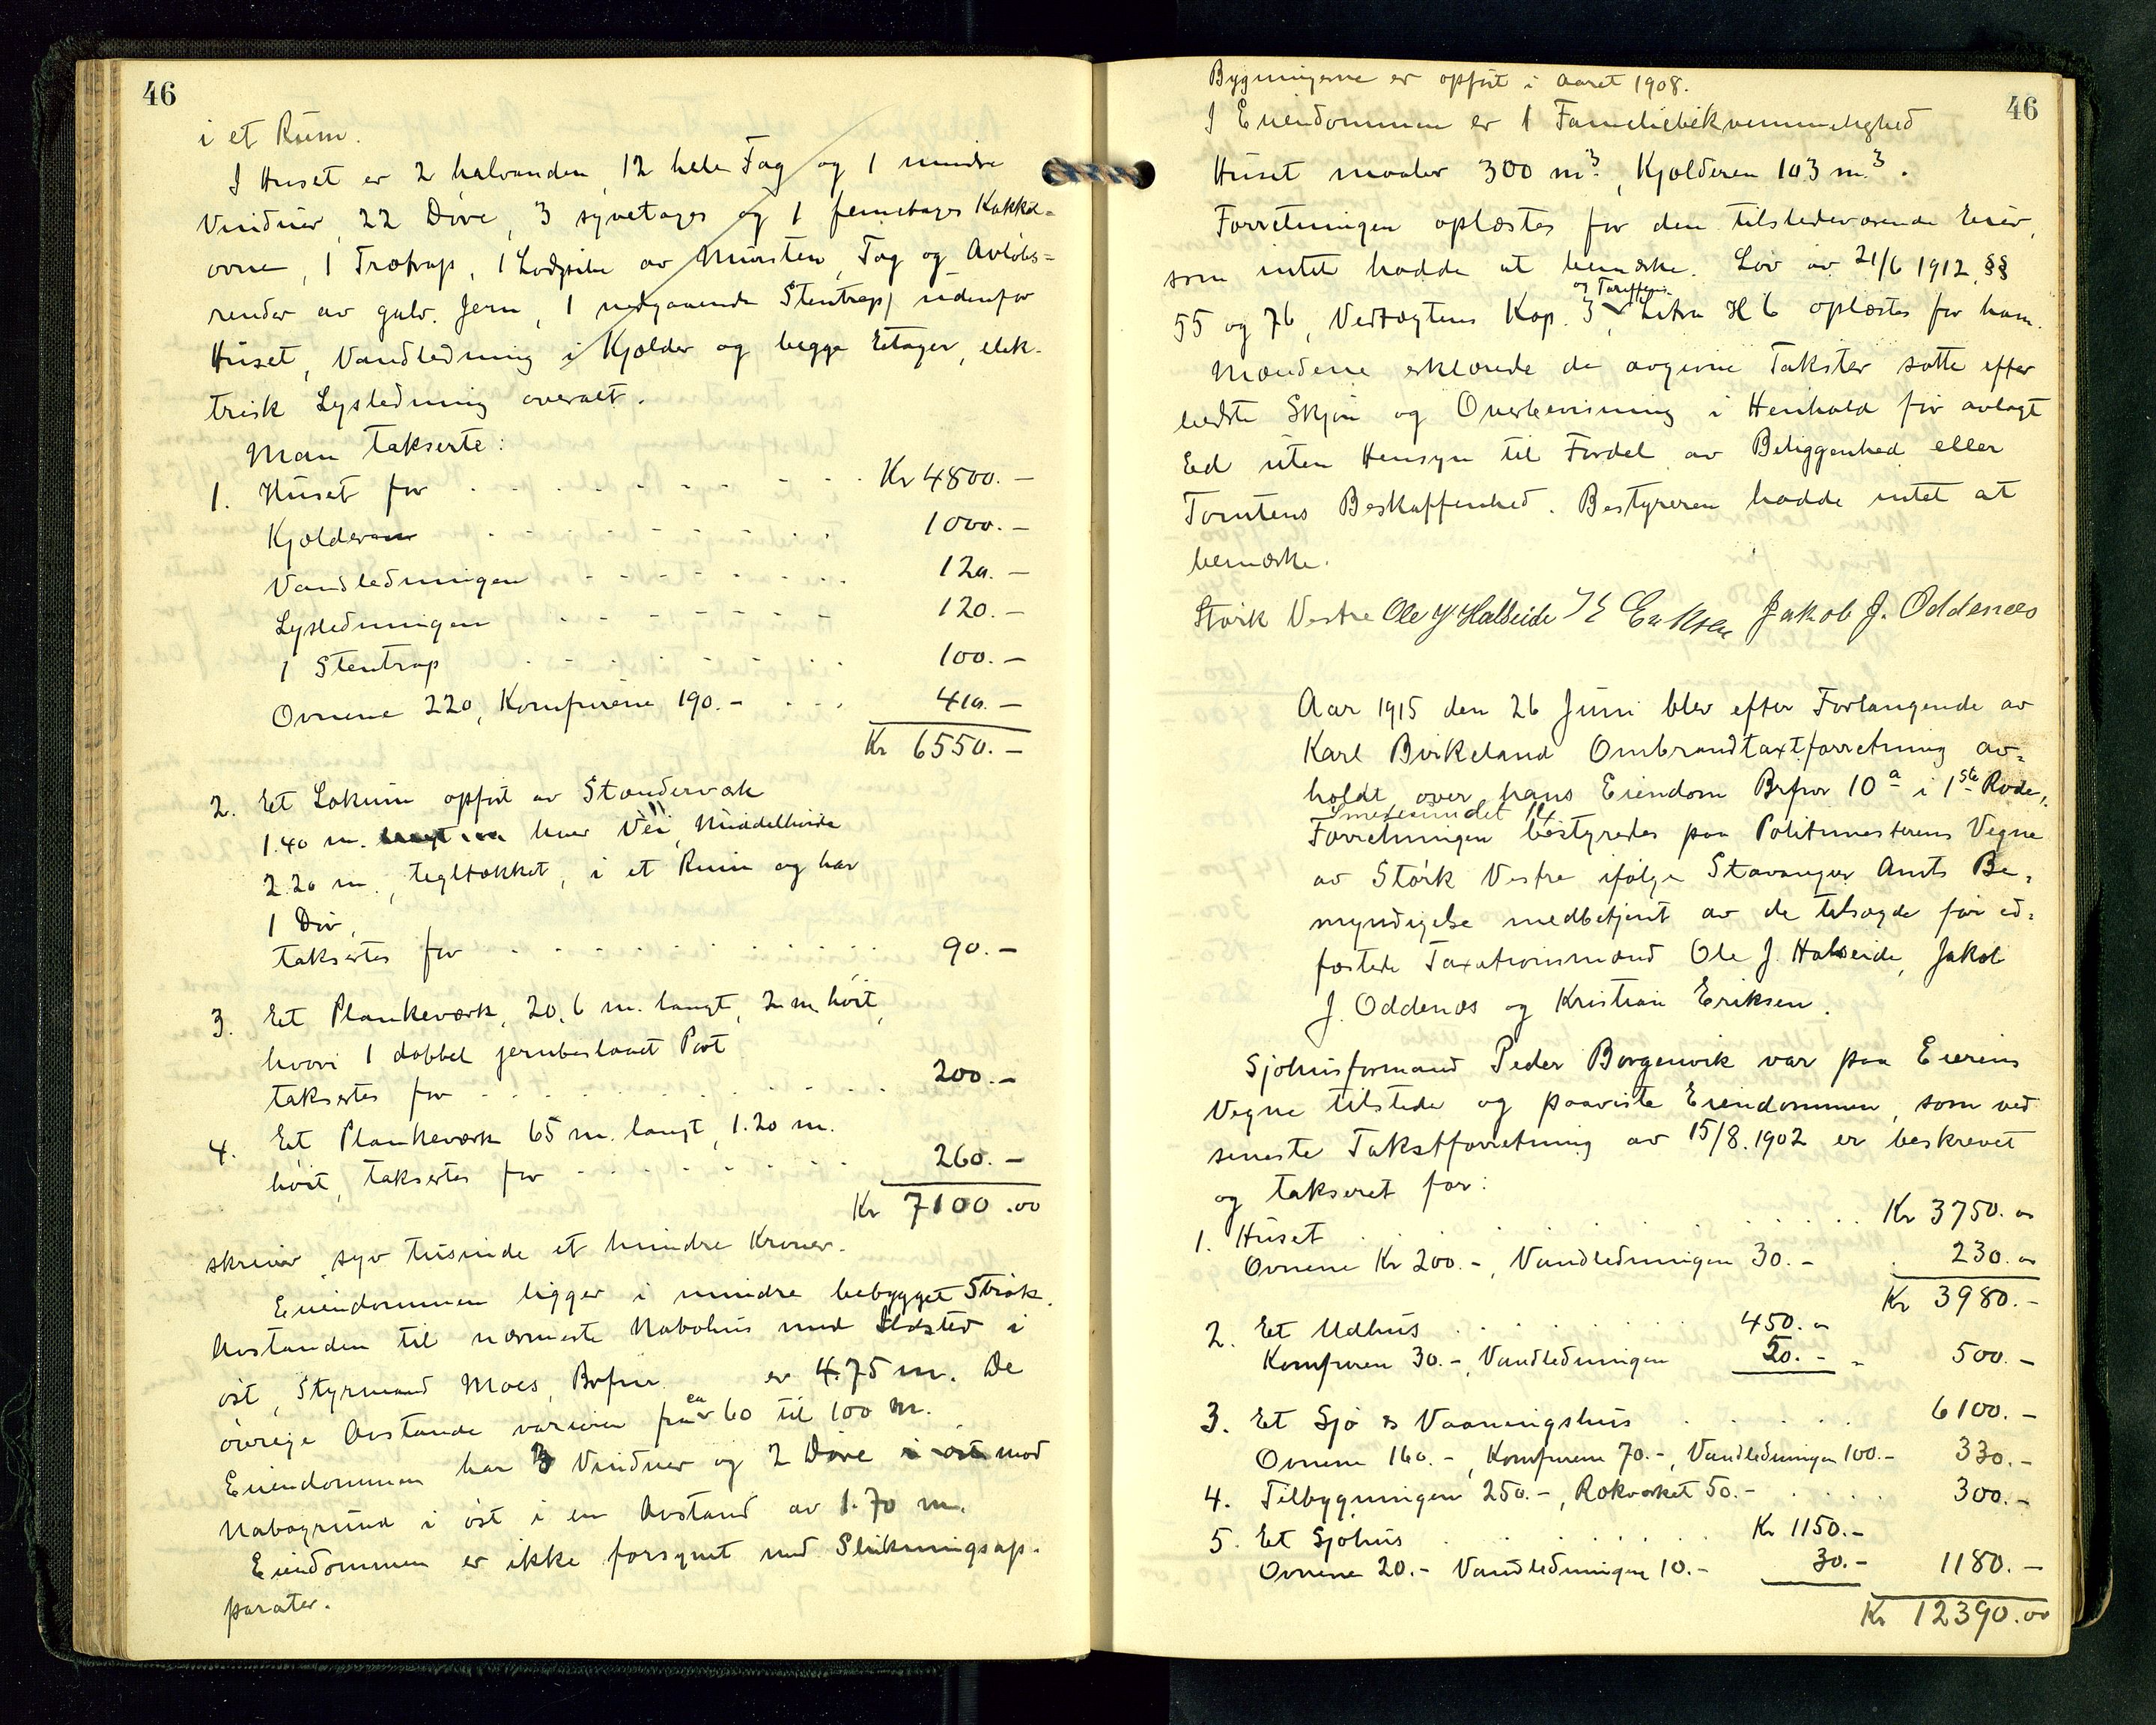 46
i et Rum.
I Huset er 2 halvanden, 12 hele Fag og 1 mindre
Vinduer, 22 Døre, 3 syvetages og 1 femetages Kakkel=
ovne, 1 Trætrap, 1 Lodpibe av Mursten, Tag og Avløbs=
render av galv. Jern, 1 nedgaaende Stentrap udenfor
Huset, Vandledning i Kjælder og begge Etager, elek-
trisk Lysledning overalt.
Man takserte:
1. Huset for Kr 4800.-
Kjælderen 1000.-
Vandledningen 120.-
Lysledningen 120.-
1 Stentrap 100.-
Ovnene 220, Komfurene 190.- 410.-
Kr 6550.-
2. Et Lokum opført av Stænderværk
1.40 m. hver Vei, Middelhøide
2.20 m., tegltækket, i et Rum og har
1 Dør,
taksertes for 90.-
3. Et Plankeværk, 20,6 m. langt, 2 m. høit,
hvori 1 dobbel jernbeslaaet Port
taksertes for 200.-
4. Et Plankeværk 65 m. langt, 1.20 m.
høit, taksertes for 260.-
Kr 7100.00
skriver syv tusinde et hundre Kroner.
Eiendommen ligger i mindre bebygget Strøk.
Avstanden til nærmeste Nabohus med Ildsted i
øst, Styrmand Moes, Brfnr er 4.75 m. De
øvrige Avstande varierer fra ca 60 til 100 m.
Eiendommen har 3 Vinduer og 2 Døre i øst mod
Nabogrund i øst i en Avstand av 1.70 m.
Eiendommen er ikke forsynet med Slukningsap-
parater.
46
Bygningerne er opført i Aaret 1908.
I Eiendommen er 1 Familiebekvemmelighed
Huset maaler 300 m³., Kjælderen 103 m³.
Forretningen oplæstes for den tilstedeværende Eier,
som intet hadde at bemærke. Lov av 21/6 1912 §§
og Tariffens
55 og 76, Vedtægtens Kap. 3, Litra H 6 oplæstes for ham.
Mændene erklærede de avgivne Takster satte efter
bedste Skjøn og Overbevisning i Henhold før avlagt
Ed uten Hensyn til Fordel av Beliggenhed eller
Tomtens Beskaffenhed. Bestyreren hadde intet at
bemærke.
Størk Vestre Ole J Halseide K Eriksen Jakob J. Oddenæs
Aar 1915 den 26 Juni blev efter Forlangende av
Karl Birkeland Ombrandtaxtforretning av=
holdt over hans Eiendom Brfnr 10 a i 1ste Rode,
Smedesundet
Forretningen bestyredes paa Politimesterens Vegne
av Størk Vestre ifølge Stavanger Amts Be=
myndigelse medbetjent av de tilsagde før ed=
fæstede Taxationsmænd Ole J. Halseide, Jakob
J. Oddenæs og Kristian Eriksen.
Sjøhusformand Peder Borgenvik var paa Eierens
Vegne tilstede og paaviste Eiendommen, som ved
seneste Takstforretning av 15/8. 1902 er beskrevet
og takseret for:
1. Huset Kr 3750.00
Ovnene Kr 200.-, Vandledningen 30.- 230.00
Kr 3980.-
2. Et Udhus 450.00
Komfuren 30.-, Vandledningen 50.- - 500.-
3. Et Sjø & Vaaningshus 6100.-
Ovnene 160.-, Komfurene 70.-, Vandledningen 100.- 330.-
4. Tilbygningen 250.-, Rækværket 50.- 300.-
5. Et Sjøhus Kr 1150.-
Ovnene 20.- Vandledningen 10.- 30.- 1180.-
Kr 12390.00